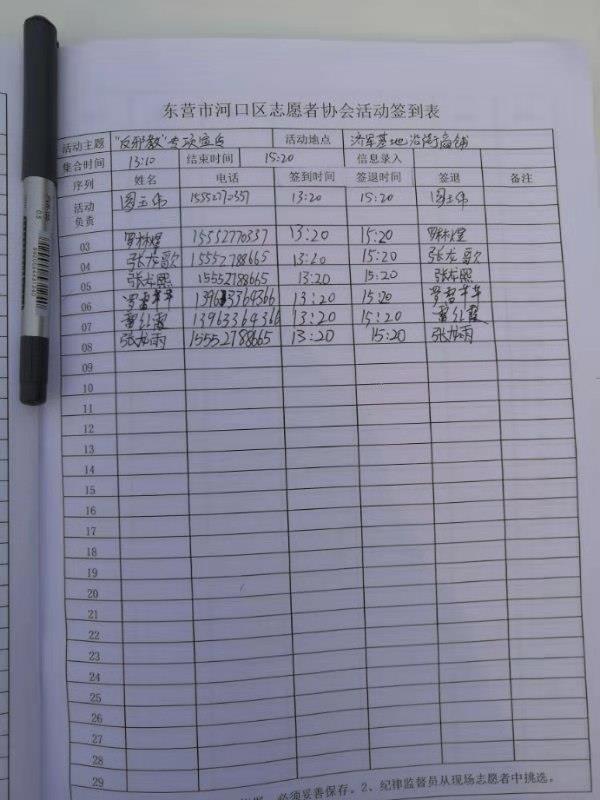 东营市河口区志愿者协会活动签到表
活动主题 "反邪教"专项宣传 活动地点 济军基地沿街商铺
集合时间 13:10 结束时间 15:20 信息录入
序列 姓名 电话 签到时间 签退时间 签退 备注
活动负责 周玉伟 15552770357 13:20 15:20 周玉伟
03 罗林煜 15552770337 13:20 15:20 罗林煜
04 张龙歌 15552788665 13:20 15:20 张龙歌
05 张龙熙 15552788665 13:20 15:20 张龙熙
06 13963364366 13:20 15:20
07 13963364366 13:20 15:20
08 张龙雨 15552788665 13:20 15:20 张龙雨
09
10
11
12
13
14
15
16
17
18
19
20
21
22
23
24
25
26
27
28
29
必须妥善保存。2、纪律监督员从现场志愿者中挑选。